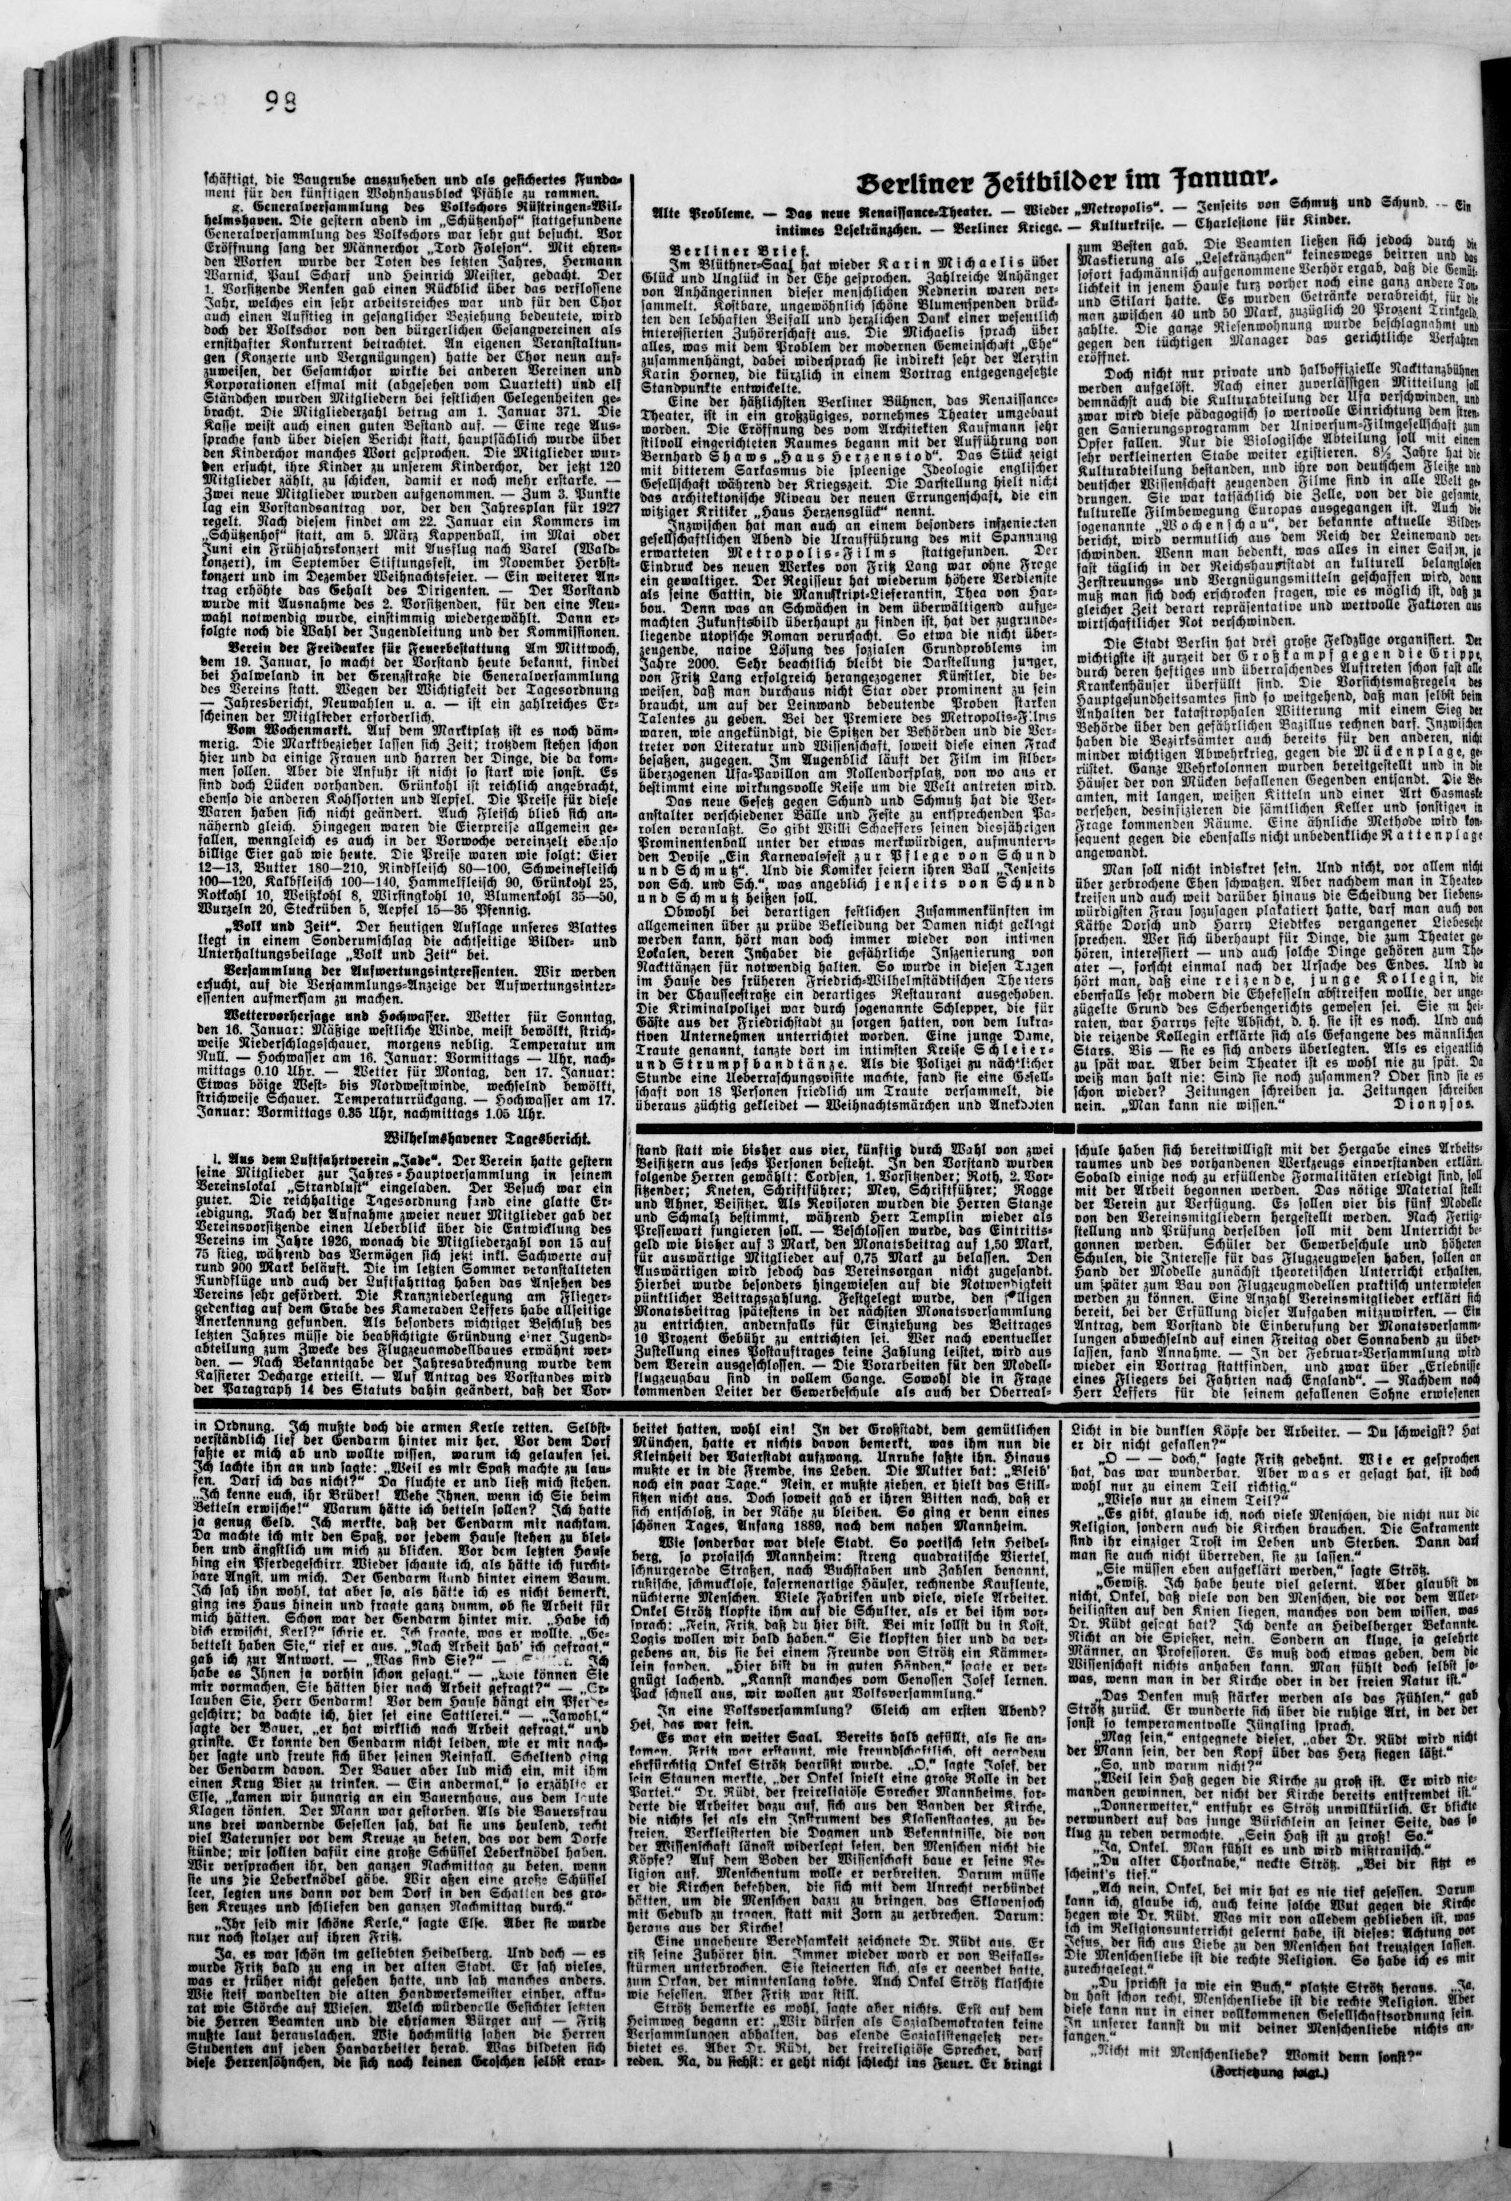 98
schäftigt, die Baugrube auszuheben und als gesichertes Funda-
ment für den künftigen Wohnhausblock Pfähle zu rammen.
g. Generalversammlung des Volkschors Rüstringen-Wil-
helmshaven. Die gestern abend im „Schützenhof“ stattgefundene
Generalversammlung des Volkschors war sehr gut besucht. Vor
Eröffnung sang der Männerchor „Tord Foleson“. Mit ehren-
den Worten wurde der Toten des letzten Jahres, Hermann
Warnick, Paul Scharf und Heinrich Meister, gedacht. Der
1. Vorsitzende Renken gab einen Rückblick über das verflossene
Jahr, welches ein sehr arbeitsreiches war und für den Chor
auch einen Aufstieg in gesanglicher Beziehung bedeutete, wird
doch der Volkschor von den bürgerlichen Gesangvereinen als
ernsthafter Konkurrent betrachtet. An eigenen Veranstaltun-
gen (Konzerte und Vergnügungen) hatte der Chor neun auf-
zuweisen, der Gesamtchor wirkte bei anderen Vereinen und
Korporationen elfmal mit (abgesehen vom Quartett) und elf
Ständchen wurden Mitgliedern bei festlichen Gelegenheiten ge-
bracht. Die Mitgliederzahl betrug am 1. Januar 371. Die
Kasse weist auch einen guten Bestand auf. — Eine rege Aus-
sprache fand über diesen Bericht statt, hauptsächlich wurde über
den Kinderchor manches Wort gesprochen. Die Mitglieder wur-
den ersucht, ihre Kinder zu unserem Kinderchor, der jetzt 120
Mitglieder zählt, zu schicken, damit er noch mehr erstarke. —
Zwei neue Mitglieder wurden aufgenommen. — Zum 3. Punkte
lag ein Vorstandsantrag vor, der den Jahresplan für 1927
regelt. Nach diesem findet am 22. Januar ein Kommers im
„Schützenhof“ statt, am 5. März Kappenball, im Mai oder
Juni ein Frühjahrskonzert mit Ausflug nach Varel (Wald-
konzert), im September Stiftungsfest, im November Herbst-
konzert und im Dezember Weihnachtsfeier. — Ein weiterer An-
trag erhöhte das Gehalt des Dirigenten. — Der Vorstand
wurde mit Ausnahme des 2. Vorsitzenden, für den eine Neu-
wahl notwendig wurde, einstimmig wiedergewählt. Dann er-
folgte noch die Wahl der Jugendleitung und der Kommissionen.
Verein der Freidenker für Feuerbestattung Am Mittwoch,
dem 19. Januar, so macht der Vorstand heute bekannt, findet
bei Halweland in der Grenzstraße die Generalversammlung
des Vereins statt. Wegen der Wichtigkeit der Tagesordnung
— Jahresbericht, Neuwahlen u. a. — ist ein zahlreiches Er-
scheinen der Mitglieder erforderlich.
Vom Wochenmarkt. Auf dem Marktplatz ist es noch däm-
merig. Die Marktbezieher lassen sich Zeit; trotzdem stehen schon
hier und da einige Frauen und harren der Dinge, die da kom-
men sollen. Aber die Anfuhr ist nicht so stark wie sonst. Es
sind doch Lücken vorhanden. Grünkohl ist reichlich angebracht,
ebenso die anderen Kohlsorten und Aepfel. Die Preise für diese
Waren haben sich nicht geändert. Auch Fleisch blieb sich an-
nähernd gleich. Hingegen waren die Eierpreise allgemein ge-
fallen, wenngleich es auch in der Vorwoche vereinzelt ebenso
billige Eier gab wie heute. Die Preise waren wie folgt: Eier
12—13, Butter 180—210, Rindfleisch 80—100, Schweinefleisch
100—120, Kalbfleisch 100—140, Hammelfleisch 90, Grünkohl 25,
Rotkohl 10, Weißkohl 8, Wirsingkohl 10, Blumenkohl 35—50,
Wurzeln 20, Steckrüben 5, Aepfel 15—35 Pfennig.
„Volk und Zeit“. Der heutigen Auflage unseres Blattes
liegt in einem Sonderumschlag die achtseitige Bilder- und
Unterhaltungsbeilage „Volk und Zeit“ bei.
Versammlung der Aufwertungsinteressenten. Wir werden
ersucht, auf die Versammlungs-Anzeige der Aufwertungsinter-
essenten aufmerksam zu machen.
Wettervorhersage und Hochwasser. Wetter für Sonntag,
den 16. Januar: Mäßige westliche Winde, meist bewölkt, strich-
weise Niederschlagschauer, morgens neblig. Temperatur um
Null. — Hochwasser am 16. Januar: Vormittags — Uhr, nach-
mittags 0.10 Uhr. — Wetter für Montag, den 17. Januar:
Etwas böige West- bis Nordwestwinde, wechselnd bewölkt,
strichweise Schauer. Temperaturrückgang. — Hochwasser am 17.
Januar: Vormittags 0.35 Uhr, nachmittags 1.05 Uhr.
Berliner Zeitbilder im Januar.
Alte Probleme. — Das neue Renaissance-Theater. — Wieder „Metropolis“. — Jenseits von Schmutz und Schund. — Ein
intimes Lesekränzchen. — Berliner Kriege. — Kulturkrise. — Charlestone für Kinder.
Berliner Brief.
Im Blüthner-Saal hat wieder Karin Michaelis über
Glück und Unglück in der Ehe gesprochen. Zahlreiche Anhänger
von Anhängerinnen dieser menschlichen Rednerin waren ver-
sammelt. Kostbare, ungewöhnlich schöne Blumenspenden drück-
ten den lebhaften Beifall und herzlichen Dank einer wesentlich
interessierten Zuhörerschaft aus. Die Michaelis sprach über
alles, was mit dem Problem der modernen Gemeinschaft „Ehe“
zusammenhängt, dabei widersprach sie indirekt sehr der Aerztin
Karin Horney, die kürzlich in einem Vortrag entgegengesetzte
Standpunkte entwickelte.
Eine der häßlichsten Berliner Bühnen, das Renaissance-
Theater, ist in ein großzügiges, vornehmes Theater umgebaut
worden. Die Eröffnung des vom Architekten Kaufmann sehr
stilvoll eingerichteten Raumes begann mit der Aufführung von
Bernhard Shaws „Haus Herzenstod“. Das Stück zeigt
mit bitterem Sarkasmus die spleenige Ideologie englischer
Gesellschaft während der Kriegszeit. Die Darstellung hielt nicht
das architektonische Niveau der neuen Errungenschaft, die ein
witziger Kritiker „Haus Herzensglück“ nennt.
Inzwischen hat man auch an einem besonders inszenierten
gesellschaftlichen Abend die Uraufführung des mit Spannung
erwarteten Metropolis-Films stattgefunden. Der
Eindruck des neuen Werkes von Fritz Lang war ohne Frage
ein gewaltiger. Der Regisseur hat wiederum höhere Verdienste
als seine Gattin, die Manuskript-Lieferantin, Thea von Har-
bou. Denn was an Schwächen in dem überwältigend aufge-
machten Zukunftsbild überhaupt zu finden ist, hat der zugrunde-
liegende utopische Roman verursacht. So etwa die nicht über-
zeugende, naive Lösung des sozialen Grundproblems im
Jahre 2000. Sehr beachtlich bleibt die Darstellung junger,
von Fritz Lang erfolgreich herangezogener Künstler, die be-
weisen, daß man durchaus nicht Star oder prominent zu sein
braucht, um auf der Leinwand bedeutende Proben starken
Talentes zu geben. Bei der Premiere des Metropolis-Films
waren, wie angekündigt, die Spitzen der Behörden und die Ver-
treter von Literatur und Wissenschaft, soweit diese einen Frack
besaßen, zugegen. Im Augenblick läuft der Film im silber-
überzogenen Ufa-Pavillon am Nollendorfplatz, von wo aus er
bestimmt eine wirkungsvolle Reise um die Welt antreten wird.
Das neue Gesetz gegen Schund und Schmutz hat die Ver-
anstalter verschiedener Bälle und Feste zu entsprechenden Pa-
rolen veranlaßt. So gibt Willi Schaeffers seinen diesjährigen
Prominentenball unter der etwas merkwürdigen, aufmuntern-
den Devise „Ein Karnevalsfest zur Pflege von Schund
und Schmutz“. Und die Komiker feiern ihren Ball „Jenseits
von Sch. und Sch.“, was angeblich jenseits von Schund
und Schmutz heißen soll.
Obwohl bei derartigen festlichen Zusammenkünften im
allgemeinen über zu prüde Bekleidung der Damen nicht geklagt
werden kann, hört man doch immer wieder von intimen
Lokalen, deren Inhaber die gefährliche Inszenierung von
Nackttänzen für notwendig halten. So wurde in diesen Tagen
im Hause des früheren Friedrich-Wilhelmstädtischen Theaters
in der Chausseestraße ein derartiges Restaurant ausgehoben.
Die Kriminalpolizei war durch sogenannte Schlepper, die für
Gäste aus der Friedrichstadt zu sorgen hatten, von dem lukra-
tiven Unternehmen unterrichtet worden. Eine junge Dame,
Traute genannt, tanzte dort im intimsten Kreise Schleier-
und Strumpfbandtänze. Als die Polizei zu nächtlicher
Stunde eine Ueberraschungsvisite machte, fand sie eine Gesell-
schaft von 18 Personen friedlich um Traute versammelt, die
überaus züchtig gekleidet — Weihnachtsmärchen und Anekdoten
zum Besten gab. Die Beamten ließen sich jedoch durch die
Maskierung als „Lesekränzchen“ keineswegs beirren und das
sofort fachmännisch aufgenommene Verhör ergab, daß die Gemüt-
lichkeit in jenem Hause kurz vorher noch eine ganz andere Ton-
und Stilart hatte. Es wurden Getränke verabreicht, für die
man zwischen 40 und 50 Mark, zuzüglich 20 Prozent Trinkgeld,
zahlte. Die ganze Riesenwohnung wurde beschlagnahmt und
gegen den tüchtigen Manager das gerichtliche Verfahren
eröffnet.
Doch nicht nur private und halboffizielle Nackttanzbühnen
werden aufgelöst. Nach einer zuverlässigen Mitteilung soll
demnächst auch die Kulturabteilung der Ufa verschwinden, und
zwar wird diese pädagogisch so wertvolle Einrichtung dem stren-
gen Sanierungsprogramm der Universum-Filmgesellschaft zum
Opfer fallen. Nur die Biologische Abteilung soll mit einem
sehr verkleinerten Stabe weiter existieren. 8½ Jahre hat die
Kulturabteilung bestanden, und ihre von deutschem Fleiße und
deutscher Wissenschaft zeugenden Filme sind in alle Welt ge-
drungen. Sie war tatsächlich die Zelle, von der die gesamte,
kulturelle Filmbewegung Europas ausgegangen ist. Auch die
sogenannte „Wochenschau“, der bekannte aktuelle Bilder-
bericht, wird vermutlich aus dem Reich der Leinewand ver-
schwinden. Wenn man bedenkt, was alles in einer Saison, ja
fast täglich in der Reichshauptstadt an kulturell belanglosen
Zerstreuungs- und Vergnügungsmitteln geschaffen wird, dann
muß man sich doch erschrocken fragen, wie es möglich ist, daß zu
gleicher Zeit derart repräsentative und wertvolle Faktoren aus
wirtschaftlicher Not verschwinden.
Die Stadt Berlin hat drei große Feldzüge organisiert. Der
wichtigste ist zurzeit der Großkampf gegen die Grippe,
durch deren heftiges und überraschendes Auftreten schon fast alle
Krankenhäuser überfüllt sind. Die Vorsichtsmaßregeln des
Hauptgesundheitsamtes sind so weitgehend, daß man selbst beim
Anhalten der katastrophalen Witterung mit einem Sieg der
Behörde über den gefährlichen Bazillus rechnen darf. Inzwischen
haben die Bezirksämter auch bereits für den anderen, nicht
minder wichtigen Abwehrkrieg, gegen die Mückenplage, ge-
rüstet. Ganze Wehrkolonnen wurden bereitgestellt und in die
Häuser der von Mücken befallenen Gegenden entsandt. Die Be-
amten, mit langen, weißen Kitteln und einer Art Gasmaske
versehen, desinfizieren die sämtlichen Keller und sonstigen in
Frage kommenden Räume. Eine ähnliche Methode wird kon-
sequent gegen die ebenfalls nicht unbedenkliche Rattenplage
angewandt.
Man soll nicht indiskret sein. Und nicht, vor allem nicht
über zerbrochene Ehen schwatzen. Aber nachdem man in Theater-
kreisen und auch weit darüber hinaus die Scheidung der liebens-
würdigsten Frau sozusagen plakatiert hatte, darf man auch von
Käthe Dorsch und Harry Liedtkes vergangener Liebesehe
sprechen. Wer sich überhaupt für Dinge, die zum Theater ge-
hören, interessiert — und auch solche Dinge gehören zum The-
ater —, forscht einmal nach der Ursache des Endes. Und da
hört man, daß eine reizende, junge Kollegin, die
ebenfalls sehr modern die Ehefesseln abstreifen wollte, der unge-
zügelte Grund des Scherbengerichts gewesen sei. Sie zu hei-
raten, war Harrys feste Absicht, d. h. sie ist es noch. Und auch
die reizende Kollegin erklärte sich als Gefangene des männlichen
Stars. Bis — sie es sich anders überlegten. Als es eigentlich
zu spät war. Aber beim Theater ist es wohl nie zu spät. Da
weiß man halt nie: Sind sie noch zusammen? Oder sind sie es
schon wieder? Zeitungen schreiben ja. Zeitungen schreiben
nein. „Man kann nie wissen.“ Dionysos.
Wilhelmshavener Tagesbericht.
l. Aus dem Luftfahrtverein „Jade“. Der Verein hatte gestern
seine Mitglieder zur Jahres-Hauptversammlung in seinem
Vereinslokal „Strandlust“ eingeladen. Der Besuch war ein
guter. Die reichhaltige Tagesordnung fand eine glatte Er-
ledigung. Nach der Aufnahme zweier neuer Mitglieder gab der
Vereinsvorsitzende einen Ueberblick über die Entwicklung des
Vereins im Jahre 1926, wonach die Mitgliederzahl von 15 auf
75 stieg, während das Vermögen sich jetzt inkl. Sachwerte auf
rund 900 Mark beläuft. Die im letzten Sommer veranstalteten
Rundflüge und auch der Luftfahrttag haben das Ansehen des
Vereins sehr gefördert. Die Kranzniederlegung am Flieger-
gedenktag auf dem Grabe des Kameraden Leffers habe allseitige
Anerkennung gefunden. Als besonders wichtiger Beschluß des
letzten Jahres müsse die beabsichtigte Gründung einer Jugend-
abteilung zum Zwecke des Flugzeugmodellbaues erwähnt wer-
den. — Nach Bekanntgabe der Jahresabrechnung wurde dem
Kassierer Decharge erteilt. — Auf Antrag des Vorstandes wird
der Paragraph 14 des Statuts dahin geändert, daß der Vor-
stand statt wie bisher aus vier, künftig durch Wahl von zwei
Beisitzern aus sechs Personen besteht. In den Vorstand wurden
folgende Herren gewählt: Cordsen, 1. Vorsitzender; Roth, 2. Vor-
sitzender; Kneten, Schriftführer; Mey, Schriftführer; Rogge
und Ahner, Beisitzer. Als Revisoren wurden die Herren Stange
und Schmalz bestimmt, während Herr Templin wieder als
Pressewart fungieren soll. — Beschlossen wurde, das Eintritts-
geld wie bisher auf 3 Mark, den Monatsbeitrag auf 1,50 Mark,
für auswärtige Mitglieder auf 0,75 Mark zu belassen. Den
Auswärtigen wird jedoch das Vereinsorgan nicht zugesandt.
Hierbei wurde besonders hingewiesen auf die Notwendigkeit
pünktlicher Beitragszahlung. Festgelegt wurde, den fälligen
Monatsbeitrag spätestens in der nächsten Monatsversammlung
zu entrichten, andernfalls für Einziehung des Beitrages
10 Prozent Gebühr zu entrichten sei. Wer nach eventueller
Zustellung eines Postauftrages keine Zahlung leistet, wird aus
dem Verein ausgeschlossen. — Die Vorarbeiten für den Modell-
flugzeugbau sind in vollem Gange. Sowohl die in Frage
kommenden Leiter der Gewerbeschule als auch der Oberreal-
schule haben sich bereitwilligst mit der Hergabe eines Arbeits-
raumes und des vorhandenen Werkzeugs einverstanden erklärt.
Sobald einige noch zu erfüllende Formalitäten erledigt sind, soll
mit der Arbeit begonnen werden. Das nötige Material stellt
der Verein zur Verfügung. Es sollen vier bis fünf Modelle
von den Vereinsmitgliedern hergestellt werden. Nach Fertig-
stellung und Prüfung derselben soll mit dem Unterricht be-
gonnen werden. Schüler der Gewerbeschule und höheren
Schulen, die Interesse für das Flugzeugwesen haben, sollen an
Hand der Modelle zunächst theoretischen Unterricht erhalten,
um später zum Bau von Flugzeugmodellen praktisch unterwiesen
werden zu können. Eine Anzahl Vereinsmitglieder erklärt sich
bereit, bei der Erfüllung dieser Aufgaben mitzuwirken. — Ein
Antrag, dem Vorstand die Einberufung der Monatsversamm-
lungen abwechselnd auf einen Freitag oder Sonnabend zu über-
lassen, fand Annahme. — In der Februar-Versammlung wird
wieder ein Vortrag stattfinden, und zwar über „Erlebnisse
eines Fliegers bei Fahrten nach England“. — Nachdem noch
Herr Leffers für die seinem gefallenen Sohne erwiesenen
in Ordnung. Ich mußte doch die armen Kerle retten. Selbst-
verständlich lief der Gendarm hinter mir her. Vor dem Dorf
faßte er mich ab und wollte wissen, warum ich gelaufen sei.
Ich lachte ihn an und sagte: „Weil es mir Spaß machte zu lau-
fen. Darf ich das nicht?“ Da fluchte er und ließ mich stehen.
„Ich kenne euch, ihr Brüder! Wehe Ihnen, wenn ich Sie beim
Betteln erwische!“ Warum hätte ich betteln sollen? Ich hatte
ja genug Geld. Ich merkte, daß der Gendarm mir nachkam.
Da machte ich mir den Spaß, vor jedem Hause stehen zu blei-
ben und ängstlich um mich zu blicken. Vor dem letzten Hause
hing ein Pferdegeschirr. Wieder schaute ich, als hätte ich furcht-
bare Angst, um mich. Der Gendarm stand hinter einem Baum.
Ich sah ihn wohl, tat aber so, als hätte ich es nicht bemerkt,
ging ins Haus hinein und fragte ganz dumm, ob sie Arbeit für
mich hätten. Schon war der Gendarm hinter mir. „Habe ich
dich erwischt, Kerl?“ schrie er. Ich fragte, was er wollte. „Ge-
bettelt haben Sie,“ rief er aus. „Nach Arbeit hab' ich gefragt,“
gab ich zur Antwort. — „Was sind Sie?“ — Ich
habe es Ihnen ja vorhin schon gesagt.“ — „Wie können Sie
mir vormachen, Sie hätten hier nach Arbeit gefragt?“ — „Er-
lauben Sie, Herr Gendarm! Vor dem Hause hängt ein Pferde-
geschirr; da dachte ich, hier sei eine Sattlerei.“ — „Jawohl,“
sagte der Bauer, „er hat wirklich nach Arbeit gefragt,“ und
grinste. Er konnte den Gendarm nicht leiden, wie er mir nach-
her sagte und freute sich über seinen Reinfall. Scheltend ging
der Gendarm davon. Der Bauer aber lud mich ein, mit ihm
einen Krug Bier zu trinken. — Ein andermal,“ so erzählte er
Else, „kamen wir hungrig an ein Bauernhaus, aus dem laute
Klagen tönten. Der Mann war gestorben. Als die Bauersfrau
uns drei wandernde Gesellen sah, bat sie uns heulend, recht
viel Vaterunser vor dem Kreuze zu beten, das vor dem Dorfe
stünde; wir sollten dafür eine große Schüssel Leberknödel haben.
Wir versprachen ihr, den ganzen Nachmittag zu beten, wenn
sie uns die Leberknödel gäbe. Wir aßen eine große Schüssel
leer, legten uns dann vor dem Dorf in den Schatten des gro-
ßen Kreuzes und schliefen den ganzen Nachmittag durch.“
„Ihr seid mir schöne Kerle,“ sagte Else. Aber sie wurde
nur noch stolzer auf ihren Fritz.
Ja, es war schön im geliebten Heidelberg. Und doch — es
wurde Fritz bald zu eng in der alten Stadt. Er sah vieles,
was er früher nicht gesehen hatte, und sah manches anders.
Wie steif wandelten die alten Handwerksmeister einher, akku-
rat wie Störche auf Wiesen. Welch würdevolle Gesichter setzten
die Herren Beamten und die ehrsamen Bürger auf — Fritz
mußte laut herauslachen. Wie hochmütig sahen die Herren
Studenten auf jeden Handarbeiter herab. Was bildeten sich
diese Herrensöhnchen, die sich noch keinen Groschen selbst erar-
beitet hatten, wohl ein! In der Großstadt, dem gemütlichen
München, hatte er nichts davon bemerkt, was ihm nun die
Kleinheit der Vaterstadt aufzwang. Unruhe faßte ihn. Hinaus
mußte er in die Fremde, ins Leben. Die Mutter bat: „Bleib'
noch ein paar Tage.“ Nein, er mußte ziehen, er hielt das Still-
sitzen nicht aus. Doch soweit gab er ihren Bitten nach, daß er
sich entschloß, in der Nähe zu bleiben. So ging er denn eines
schönen Tages, Anfang 1889, nach dem nahen Mannheim.
Wie sonderbar war diese Stadt. So poetisch sein Heidel-
berg, so prosaisch Mannheim: streng quadratische Viertel,
schnurgerade Straßen, nach Buchstaben und Zahlen benannt,
rußische, schmucklose, kasernenartige Häuser, rechnende Kaufleute,
nüchterne Menschen. Viele Fabriken und viele, viele Arbeiter.
Onkel Strötz klopfte ihm auf die Schulter, als er bei ihm vor-
sprach: „Fein, Fritz, daß du hier bist. Bei mir sollst du in Kost,
Logis wollen wir bald haben.“ Sie klopften hier und da ver-
gebens an, bis sie bei einem Freunde von Strötz ein Kämmer-
lein fanden. „Hier bist du in guten Händen,“ sagte er ver-
gnügt lachend. „Kannst manches vom Genossen Josef lernen.
Pack schnell aus, wir wollen zur Volksversammlung.“
In eine Volksversammlung? Gleich am ersten Abend?
Hei, das war fein.
Es war ein weiter Saal. Bereits halb gefüllt, als sie an-
kamen. Fritz war erstaunt, wie freundschaftlich, oft geradezu
ehrfürchtig Onkel Strötz begrüßt wurde. „O,“ sagte Josef, der
sein Staunen merkte, „der Onkel spielt eine große Rolle in der
Partei.“ Dr. Rüdt, der freireligiöse Sprecher Mannheims, for-
derte die Arbeiter dazu auf, sich aus den Banden der Kirche,
die nichts sei als ein Instrument des Klassenstaates, zu be-
freien. Verkleisterten die Dogmen und Bekenntnisse, die von
der Wissenschaft längst widerlegt seien, den Menschen nicht die
Köpfe? Auf dem Boden der Wissenschaft baue er seine Re-
ligion auf. Menschentum wolle er verbreiten. Darum müsse
er die Kirchen befehden, die sich mit dem Unrecht verbündet
hätten, um die Menschen dazu zu bringen, das Sklavenjoch
mit Geduld zu tragen, statt mit Zorn zu zerbrechen. Darum:
heraus aus der Kirche!
Eine ungeheure Beredsamkeit zeichnete Dr. Rüdt aus. Er
riß seine Zuhörer hin. Immer wieder ward er von Beifalls-
stürmen unterbrochen. Sie steigerten sich, als er geendet hatte,
zum Orkan, der minutenlang tobte. Auch Onkel Strötz klatschte
wie besessen. Aber Fritz war still.
Strötz bemerkte es wohl, sagte aber nichts. Erst auf dem
Heimweg begann er: „Wir dürfen als Sozialdemokraten keine
Versammlungen abhalten, das elende Sozialistengesetz ver-
bietet es. Aber Dr. Rüdt, der freireligiöse Sprecher, darf
reden. Na, du siehst: er geht nicht schlecht ins Feuer. Er bringt
Licht in die dunklen Köpfe der Arbeiter. — Du schweigst? Hat
er dir nicht gefallen?“
„O — — doch,“ sagte Fritz gedehnt. Wie er gesprochen
hat, das war wunderbar. Aber was er gesagt hat, ist doch
wohl nur zu einem Teil richtig.“
„Wieso nur zu einem Teil?“
„Es gibt, glaube ich, noch viele Menschen, die nicht nur die
Religion, sondern auch die Kirchen brauchen. Die Sakramente
sind ihr einziger Trost im Leben und Sterben. Dann darf
man sie auch nicht überreden, sie zu lassen.“
„Sie müssen eben aufgeklärt werden,“ sagte Strötz.
„Gewiß. Ich habe heute viel gelernt. Aber glaubst du
nicht, Onkel, daß viele von den Menschen, die vor dem Aller-
heiligsten auf den Knien liegen, manches von dem wissen, was
Dr. Rüdt gesagt hat? Ich denke an Heidelberger Bekannte.
Nicht an die Spießer, nein. Sondern an kluge, ja gelehrte
Männer, an Professoren. Es muß doch etwas geben, dem die
Wissenschaft nichts anhaben kann. Man fühlt doch selbst so-
was, wenn man in der Kirche oder in der freien Natur ist.“
„Das Denken muß stärker werden als das Fühlen,“ gab
Strötz zurück. Er wunderte sich über die ruhige Art, in der der
sonst so temperamentvolle Jüngling sprach.
„Mag sein,“ entgegnete dieser, „aber Dr. Rüdt wird nicht
der Mann sein, der den Kopf über das Herz siegen läßt.“
„So, und warum nicht?“
„Weil sein Haß gegen die Kirche zu groß ist. Er wird nie-
manden gewinnen, der nicht der Kirche bereits entfremdet ist.“
„Donnerwetter,“ entfuhr es Strötz unwillkürlich. Er blickte
verwundert auf das junge Bürschlein an seiner Seite, das so
klug zu reden vermochte. „Sein Haß ist zu groß! So.“
„Ja, Onkel. Man fühlt es und wird mißtrauisch.“
„Du alter Chorknabe,“ neckte Strötz. „Bei dir sitzt es
scheint's tief.“
„Ach nein, Onkel, bei mir hat es nie tief gesessen. Darum
kann ich, glaube ich, auch keine solche Wut gegen die Kirche
hegen wie Dr. Rüdt. Was mir von alledem geblieben ist, was
ich im Religionsunterricht gelernt habe, ist dieses: Achtung vor
Jesus, der sich aus Liebe zu den Menschen hat kreuzigen lassen.
Die Menschenliebe ist die rechte Religion. So habe ich es mir
zurechtgelegt.“
„Du sprichst ja wie ein Buch,“ platzte Strötz heraus. „Ja,
du hast schon recht, Menschenliebe ist die rechte Religion. Aber
diese kann nur in einer vollkommenen Gesellschaftsordnung sein.
In unserer kannst du mit deiner Menschenliebe nichts an-
fangen.“
„Nicht mit Menschenliebe? Womit denn sonst?“
(Fortsetzung folgt.)